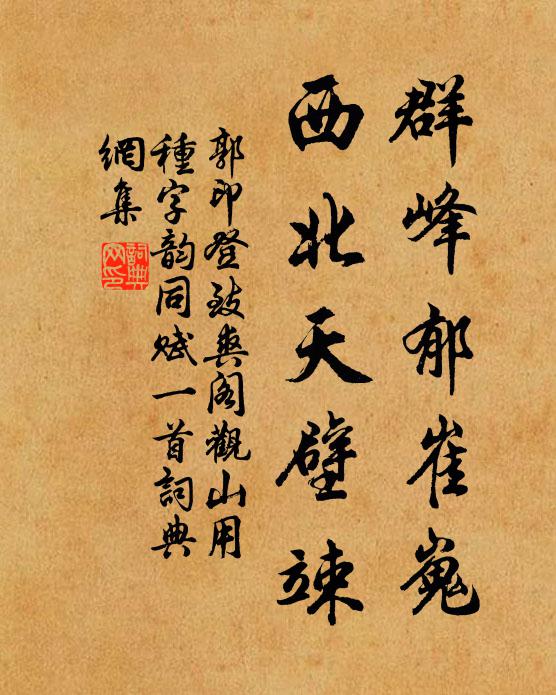 群峰郁崔嵬
西北天壁竦
郭印登致爽阁觀山用
種字韵同赋一首詞典
網集
詞典
网印